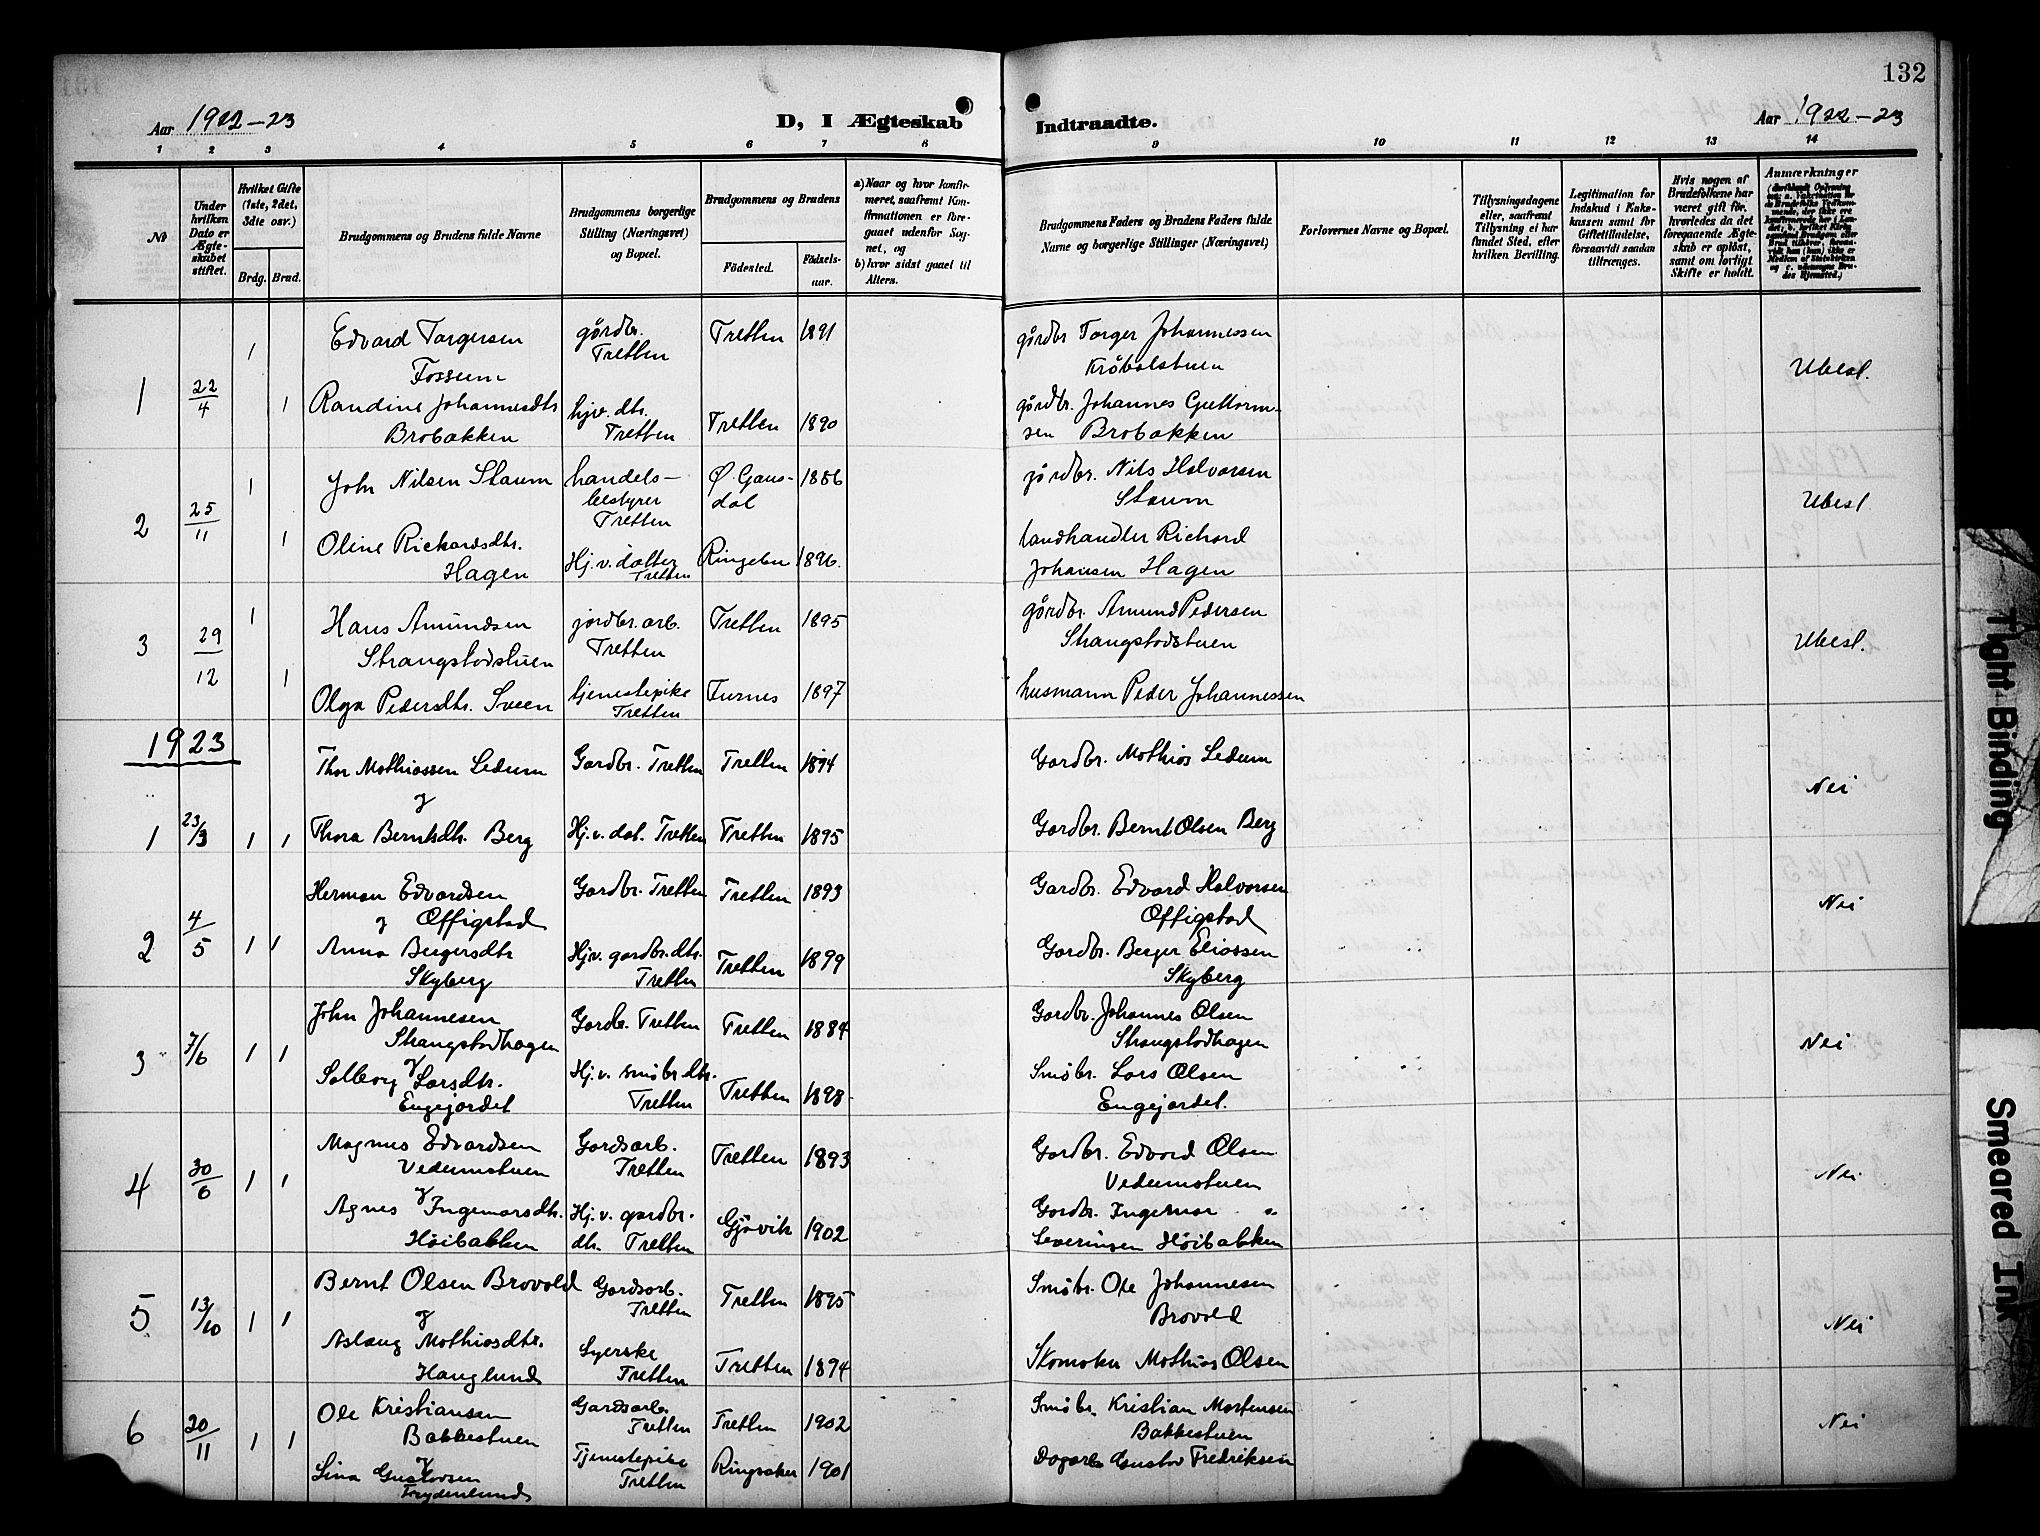 132
Aar 1922-23
D, I Ægteskab
Indtraadte.
Aar 1922-23
1 2 3 4 5 6 7 8 9 10 11 12 13 14
No
Under hvilken Dato er Ægteskabet stiftet.
Hvilket Gifte (1ste, 2det, 3die osv.)
Brdg. Brud.
Brudgommens og Brudens fulde Navne
Brudgommens borgerlige Stilling (Næringsvei) og Bopæl.
Brudgommens og Brudens
Födested.
Födselsaar.
a) Naar og hvor konfirmeret, saafremt Konfirmationen er foregaaet udenfor Sognet, og
b) hvor sidst gaaet til Alters.
Brudgommens Faders og Brudens Faders fulde Navne og borgerlige Stillinger (Næringsvei)
Forlovernes Navne og Bopæl.
Tillysningsdagene eller, saafremt Tillysning ei har fundet Sted, efter hvilken Bevilling.
Legitimation for Indskud i Enkekassen samt for Giftetilladelse, forsaavidt saadan tiltrænges.
Hvis nogen af Brudefolkene har været gift för, hvorledes da det foregaaende Ægteskab er oplöst, samt om lovligt Skifte er holdt.
Anmærkninger
Edvard Torgersen gårdbr. Tretten 1891 gårdbr Torger Johannessen
1 Fossum Tretten Kråbølstuen
1 22/4 Ubesl.
1 Randine Johannesdtr hjv. dtr. Tretten 1890 gårdbr. Johannes Guttorm-
Brobakken Tretten sen Brobakken
1 John Nilsen Staum handels- Ø. Gaus- 1886 jordbr. Nils Halvorsen
bestyrer dal Staum
2 25/11 Tretten Ubesl
1 Oline Rickardsdtr. Hj.v. datter Ringebu 1896. landhandler Richard
Hagen Tretten Johansen Hagen
1 Hans Amundsen jordbr. arb. Tretten 1895 gårdbr. Amund Pedersen
Strangstadstuen Tretten Strangstadstuen
3 29/12 Ubesl.
1 Olga Pedersdtr. Sveen tjenestepike Furnes 1897 husmann Peder Johannessen
Tretten
1923
Thor Mathiassen Ledum Gardbr. Tretten Tretten 1894 Gardbr. Mathias Ledum
og Nei
1 23/3 1 1 Thora Berntsdtr. Berg Hj.v. dat. Tretten Tretten 1895 Gardbr. Bernt Olsen Berg
Herman Edvardsen Gardbr. Tretten Tretten 1893 Gardbr. Edvard Halvorsen
og Offigstad Offigstad Nei
2 4/5 1 1 Anna Bergersdtr Hjv. gardbr.dtr. Tretten 1899 Gardbr. Berger Eliassen
Skyberg Tretten Skyberg
John Johannesen Gardbr. Tretten Tretten 1884 Gardbr. Johannes Olsen
Strangstadhagen Strangstadhagen
3 7/6 1 1 og Nei
Solberg Larsdtr. Hj.v. småbr.dtr. Tretten 1898 Småbr. Lars Olsen
Engejordet Tretten Engejordet.
Magnus Edvardsen Gardsarb. Tretten 1893 Gardbr. Edvard Olsen
Vedumstuen Tretten Vedumstuen
4 30/6 1 1 og Nei
Agnes Ingemarsdtr. Hj.v. gardbr. Gjøvik 1902 Gardbr. Ingemar
Høibakken dtr. Tretten Severinsen Høibakken
Bernt Olsen Brovold Gardsarb. Tretten 1895 Småbr. Ole Johannesen
og Tretten Brovold
5 13/10 1 1 Nei
Aslaug Mathiasdtr. Syerske Tretten 1894 Skomaker Mathias Olsen
Hauglund Tretten
Ole Kristiansen Gardsarb. Tretten 1902 Småbr. Kristian Mortensen
Bakkestuen Tretten Bakkestuen
6 20/11 1 1 og Nei
Lina Gustavsen Tjenestepike Ringsaker 1901 Dagarb. Gustav Fredriksen
Frydenlund Tretten
Tight Binding
Smeared Ink